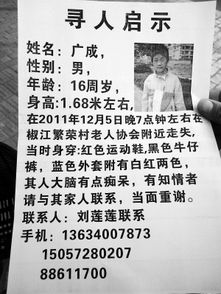 寻人启示
姓名：广成，
性别：男，
年龄：16周岁，
身高:1.68米左右，
在2011年12月5日晚7点钟左右在
椒江繁荣村老人协会附近走失，
当时身穿:红色运动鞋,黑色牛仔
裤，蓝色外套附有白红两色，
其人大脑有点痴呆，有知情者
请与其家人联系，当面重谢。
联系人：刘莲莲联系
手机：13634007873
15057280207
88611700